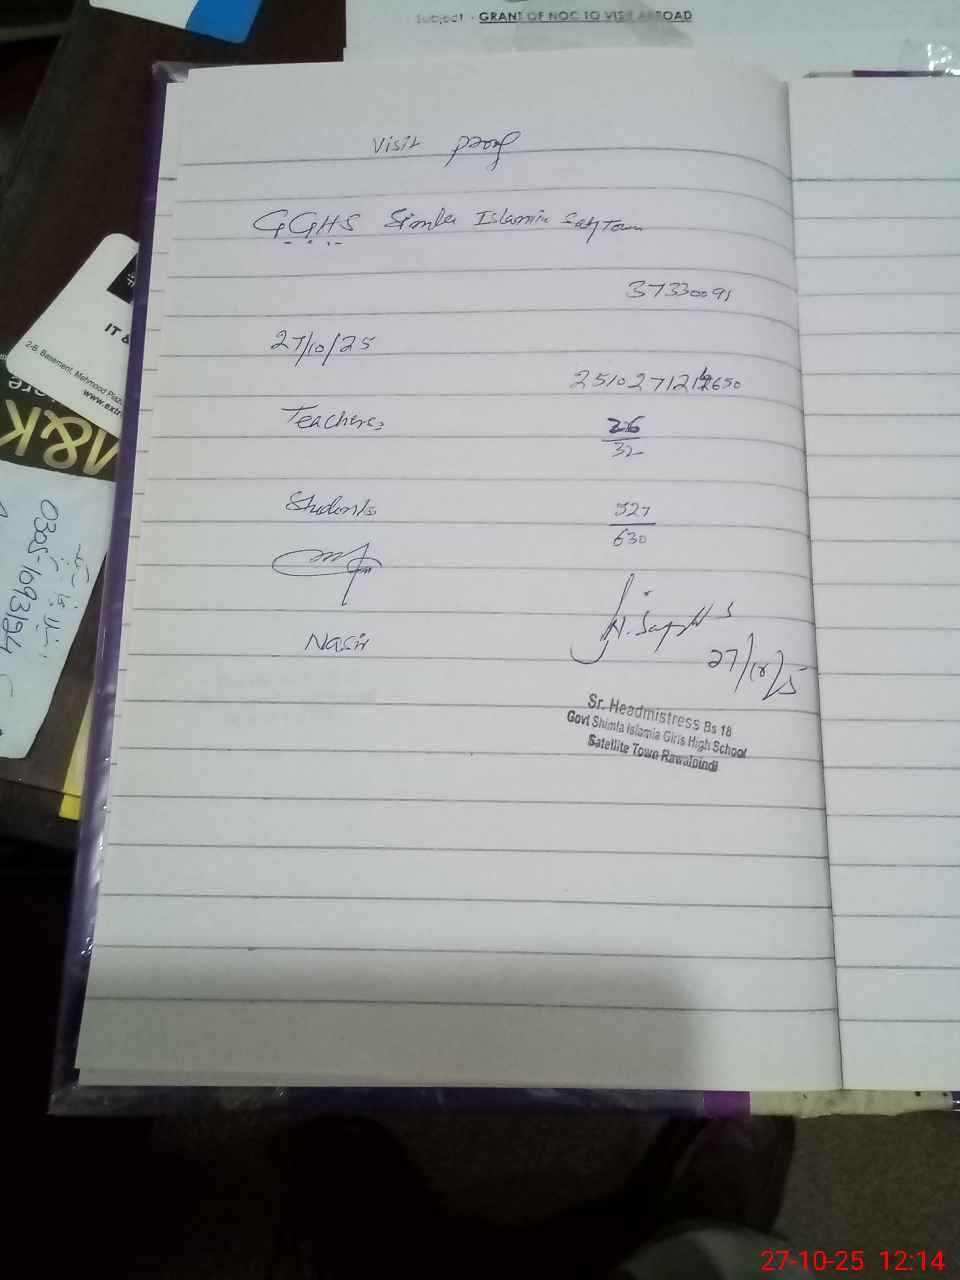 Subject : GRANT OF NOC TO VISIT ABROAD
Visit proof
GGHS Simla Islamia Sat Town
37330091
27/10/25
Teachers 26/32
Students 527/630
Nasir
27/10/25
Sr. Headmistress Bs 18
Govt Shimla Islamia Girls High School
Satellite Town Rawalpindi
IT &
2-B, Basement, Mehmood Plaza
www.extr
M&K
0305-1693124
27-10-25 12:14